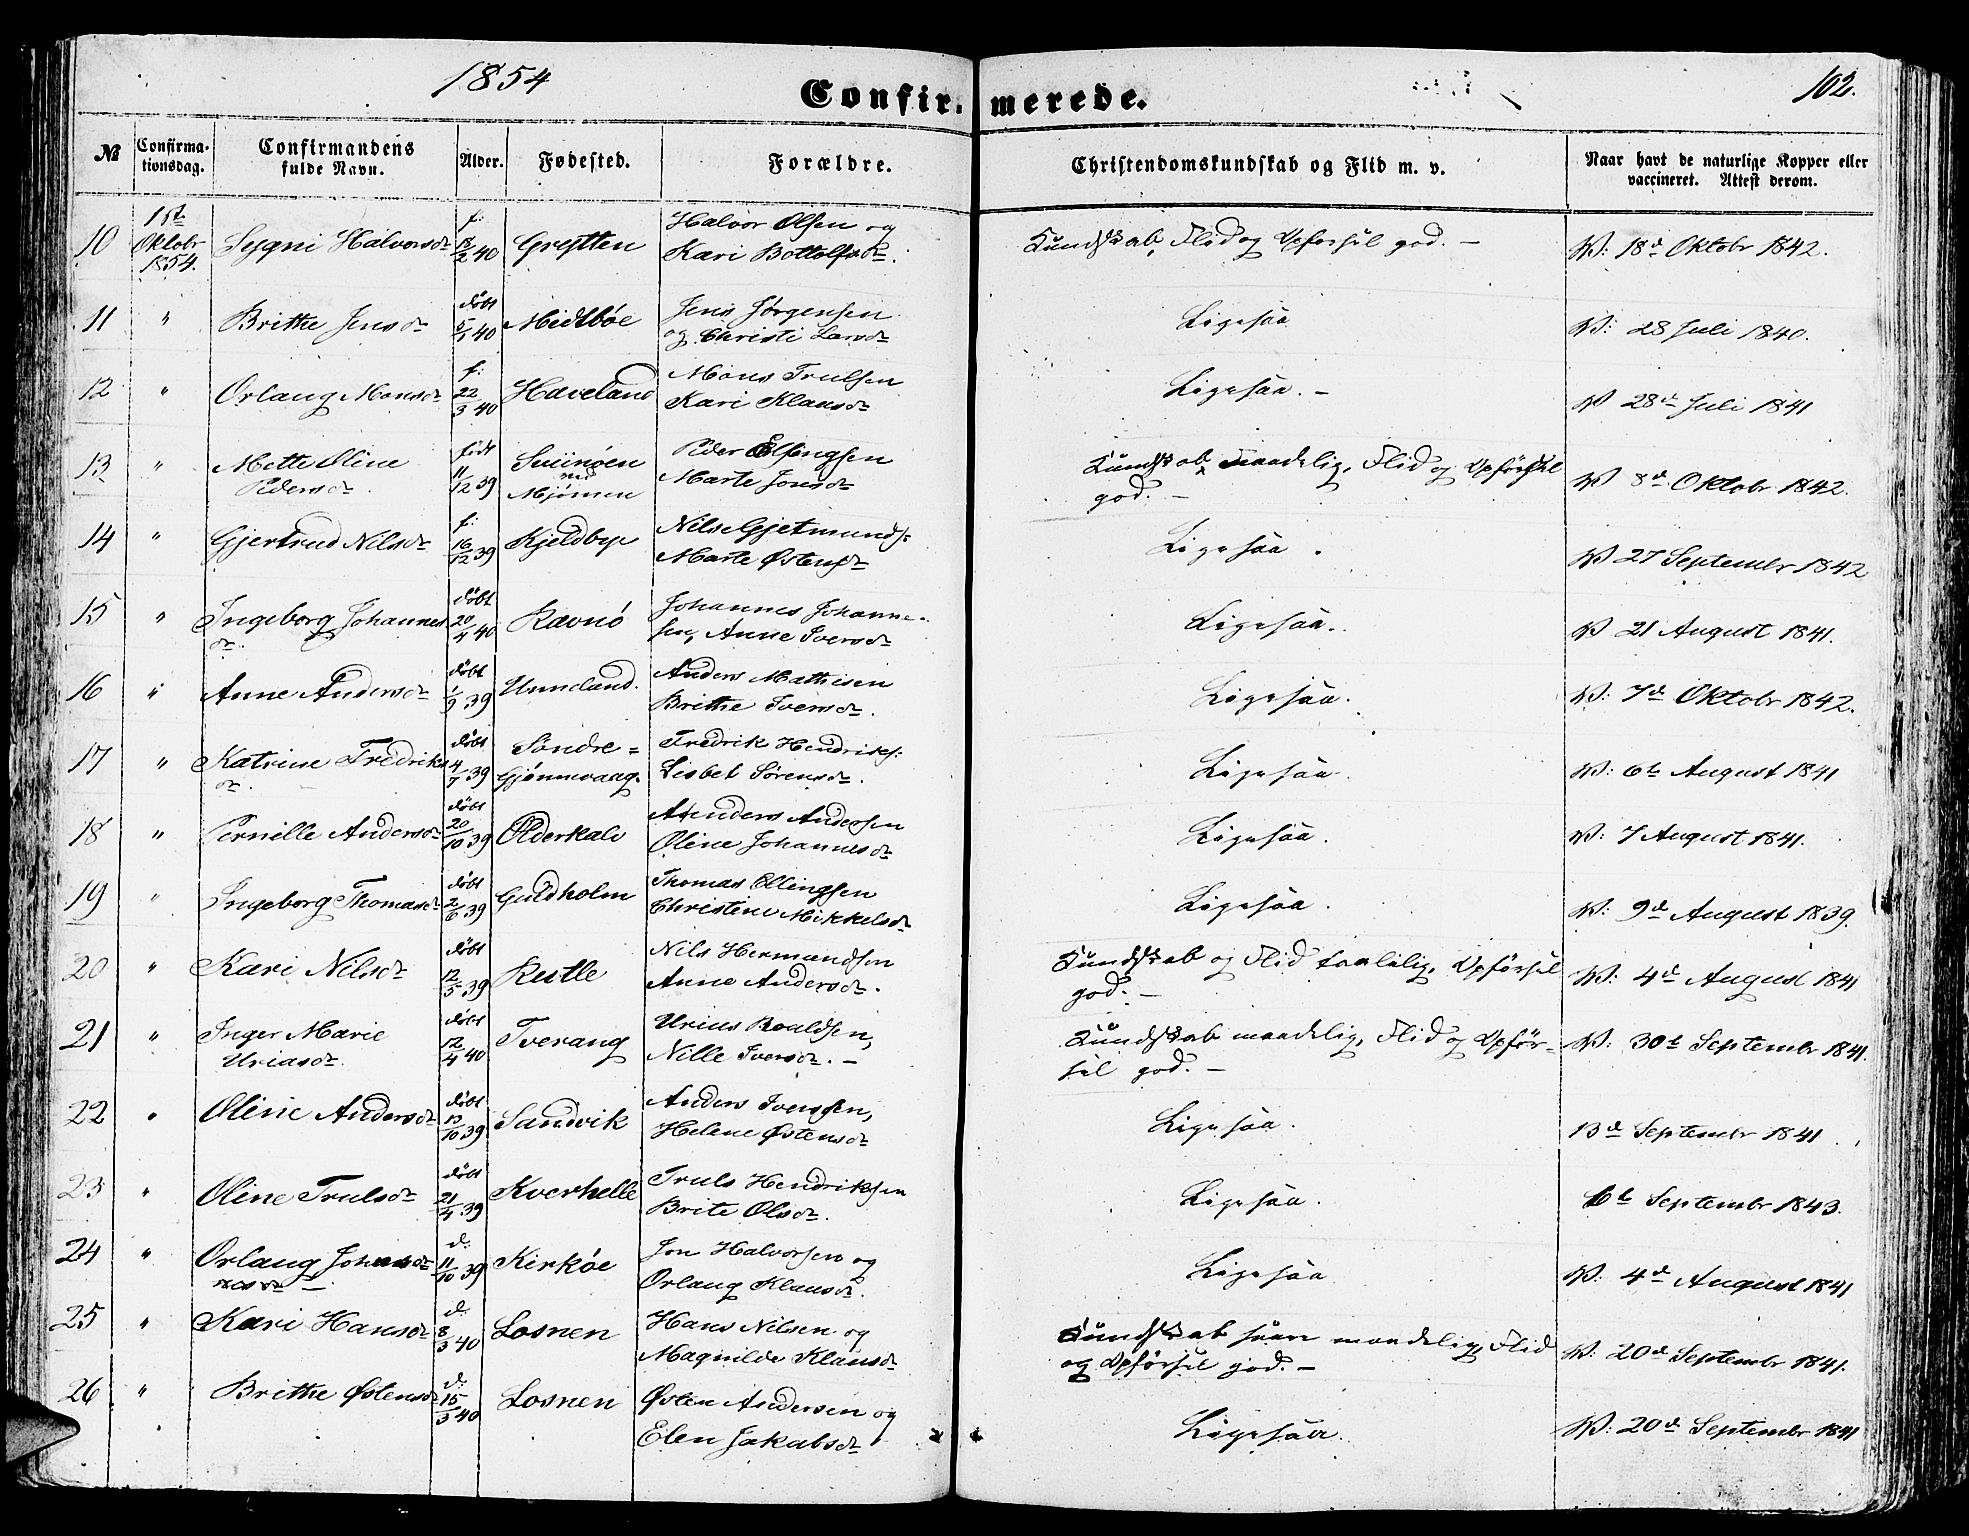 1854
Confirmerede.
102.
№ Confirmationsdag. Confirmandens fulde Navn. Alder. Fødested. Forældre. Christendomskundskab og Flid m. v. Naar havt de naturlige Kopper eller vaccineret. Attest derom.
10 1ste Oktobr 1854. Sygni Halvorsdr f: 18/2 40 Grytten Halvor Olsen og Kari Bottolfsdr. Kundskab, Flid og Opførsel god. — V: 18d Oktobr 1842.
11 " Brithe Jensdr døbt 5/1 40 Midtbøe Jens Jørgensen og Christi Larsdr Ligesaa V: 28 Juli 1840.
12 " Orlaug Monsdr f: 22/3 40 Haveland Mons Trulsen Kari Klausdr Ligesaa. — V 28de Juli 1841
13 " Mette Oline Pedersdr. født 11/12 39 ved Mjømen Peder Elfingsen Marte Jonsdr Kundskab maadelig, Flid og Opførsel god. — V 8d Oktobr 1842.
14 " Gjertrud Nilsdr f: 16/12 39 Kjeldbye Nils Gjetmunds: Marte Østensdr Ligesaa. V 27 Septembr 1842
15 " Ingeborg Johannesdr. døbt 20/4 40 Ravnö Johannes Johannesen, Anne Iversdr Ligesaa. V 21 August 1841.
16 " Anne Andersdr døbt 1/9 39 Unneland. Anders Mathisen Brithe Iversdr. Ligesaa. V: 7d Oktobr 1842.
17 " Katrine Fredriksdr. døbt 4/7 39 Söndre=Gjønnevaag. Fredrik Hendriks: Lisbet Sørensdr. Ligesaa. V: 6te August 1841
18 " Pernille Andersdr døbt 20/10 39 Olderkalv Anders Andersen Oline Johannesdr Ligesaa. V: 7 August 1841.
19 " Ingeborg Thomasdr døbt 2/6 39 Guldholm Thomas Ellingsen Christene Mikkelsdr Ligesaa. V: 9d August 1839.
20 " Kari Nilsdr døbt 12/5 39 Rutle Nils Hermandsen Anne Andersdr. Kundskab og Flid taalelig, Opførsel god. — V: 4d August 1841
21 " Inger Marie Uriasdr. døbt 12/4 40 Tverang Urias Roaldsen, Nille Iversdr. — Kundskab maadelig, Flid og Opførsel god. — V: 30te Septembr 1841.
22 " Oline Andersdr døbt 13/10 39 Sandvik Anders Iversen, Helene Østensdr Ligesaa. 13d Septembr 1841.
23 " Oline Trulsdr døbt 21/4 39 Kverhelle Truls Hendriksen Brite Olsdr. Ligesaa. 6te Septembr 1843.
24 " Orlaug Jonsdr — d: 11/10 39 Kirkøe Jon Halvorsen og Orlaug Klausdr. Ligesaa V: 4d August 1841
25 " Kari Hansdr d: 8/3 40 Losnen Hans Nilsen og Magnilde Klausdr Kundskab maadelig, Flid og Opførsel god. — V: 20d Septembr 1841.
26 " Brithe Østensdr d: 15/3 40 Losnen Østen Andersen og Elen Jakobsdr Ligesaa. V: 20d Septembr 1841